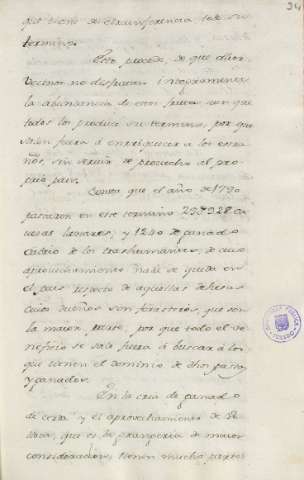 34
que tiene de circunferencia todo su
termino.
Esto procede de que dhos
Vecinos no disfrutan integramente
la abundancia de otros frutos con que
todos los produce su termino, por que
salen fuera á enriquecer a los estra
ños, sin servir de provecho al pro
pio pais.
Consta que el año de 1790
pastaron en este termino 29 928 ca
vezas lanares, y 1240 de ganado
cabrio de los trashumantes, de cuio
aprovechamiento nada se queda en
el pais respecto de aquellas dehesas
cuios dueños son forasteros, que son
la maior parte, por que todo el ve
neficio se sale fuera á buscar á los
que tienen el dominio de dhos pastos
y ganados.
En la cria de ganado
de cerda y el aprovechamiento de Be
llota, que es la grangeria de maior
consideracion, tienen mucha parte